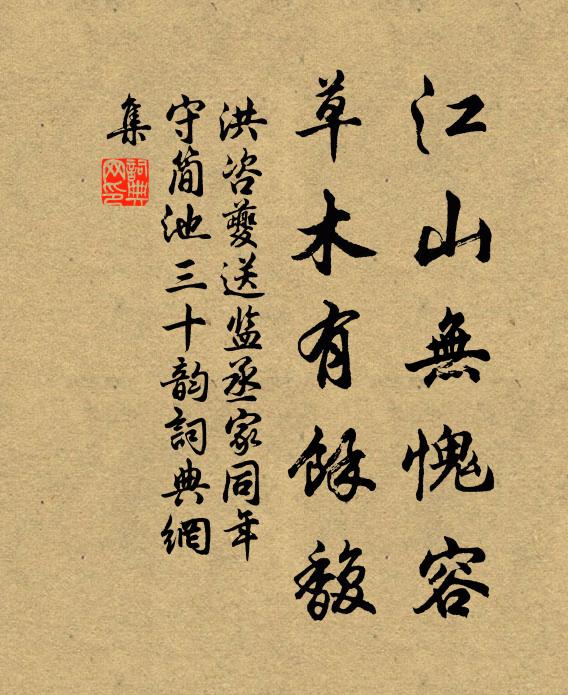 江山無愧容
草木有餘馥
洪咨夔送监丞家同年
守简池三十韵詞典網
集
詞典
网印